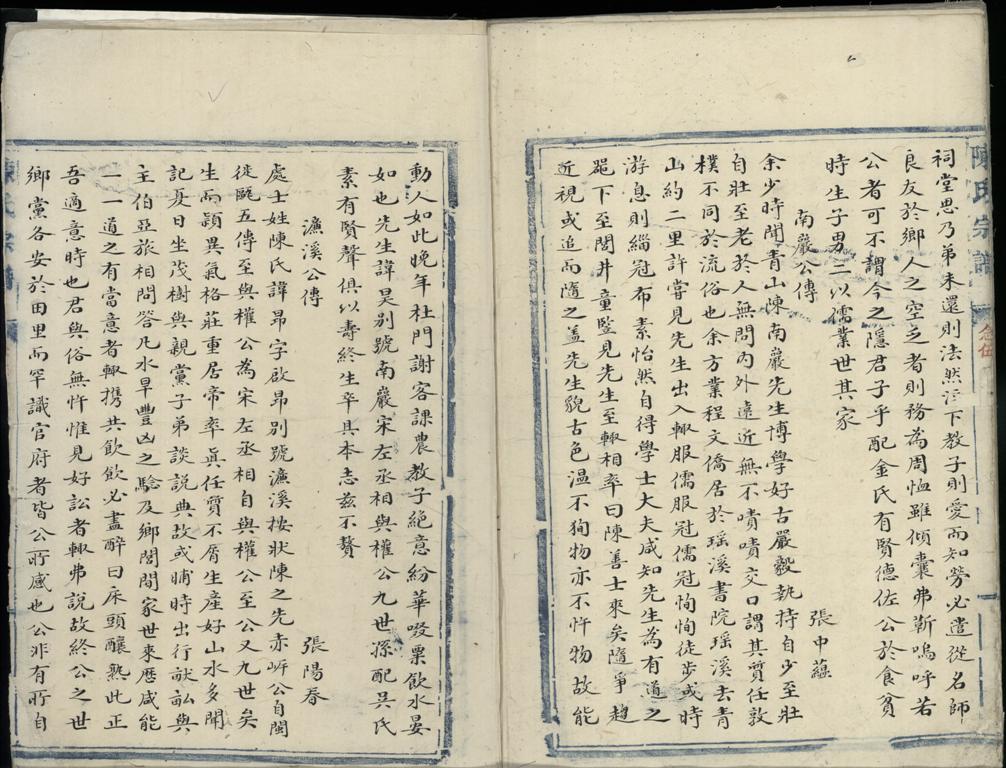 陳氏宗譜
祠堂思乃弟未還則法然泣下教子則愛而知勞必遣從名師
良友於鄉人之空乏者則務為周恤雖傾囊弗靳嗚呼若
公者可不謂今之隱君子乎配金氏有賢德佐公於食貧
時生子男二以儒業世其家
南巖公傳
張中蘊
余少時聞青山陳南巖先生博學好古嚴毅執持自少至壯
自壯至老於人無問內外遠近無不嘖嘖交口謂其質任敦
樸不同於流俗也余方業程文僑居於瑶溪書院瑶溪去青
山約二里許嘗見先生出入輙服儒服冠儒冠恂恂徒步或時
游息則緇冠布素怡然自得學士大夫咸知先生為有道之
器下至閭井童豎見先生至輙相率曰陳善士來矣隨爭趨
近視或追而隨之盖先生貌古色溫不狥物亦不忤物故能
動人如此晚年杜門謝客課農教子絕意紛華啜粟飲水晏
如也先生諱昊别號南巖宋左丞相與權公九世孫配吳氏
素有賢聲俱以壽終生卒具本志茲不贅
濂溪公傳
張陽春
處士姓陳氏諱昂字啟昂别號濂溪按狀陳之先赤岍公自閩
徙甌五傳至與權公為宋左丞相自與權公至公又九世矣
生而穎異氣格莊重居帝率眞任質不屑生産好山水多聞
記夏日坐茂樹與親黨子弟談説典故或晡時出行畎畝與
主伯亞旅相問答凡水旱豐凶之驗及鄉閭間家世來歷咸能
一一道之有當意者輙携共飲飲必盡醉曰床頭釀熟此正
吾適意時也君與俗無忤惟見好訟者輙弗説故終公之世
鄉黨各安於田里而罕識官府者皆公所感也公非有所自